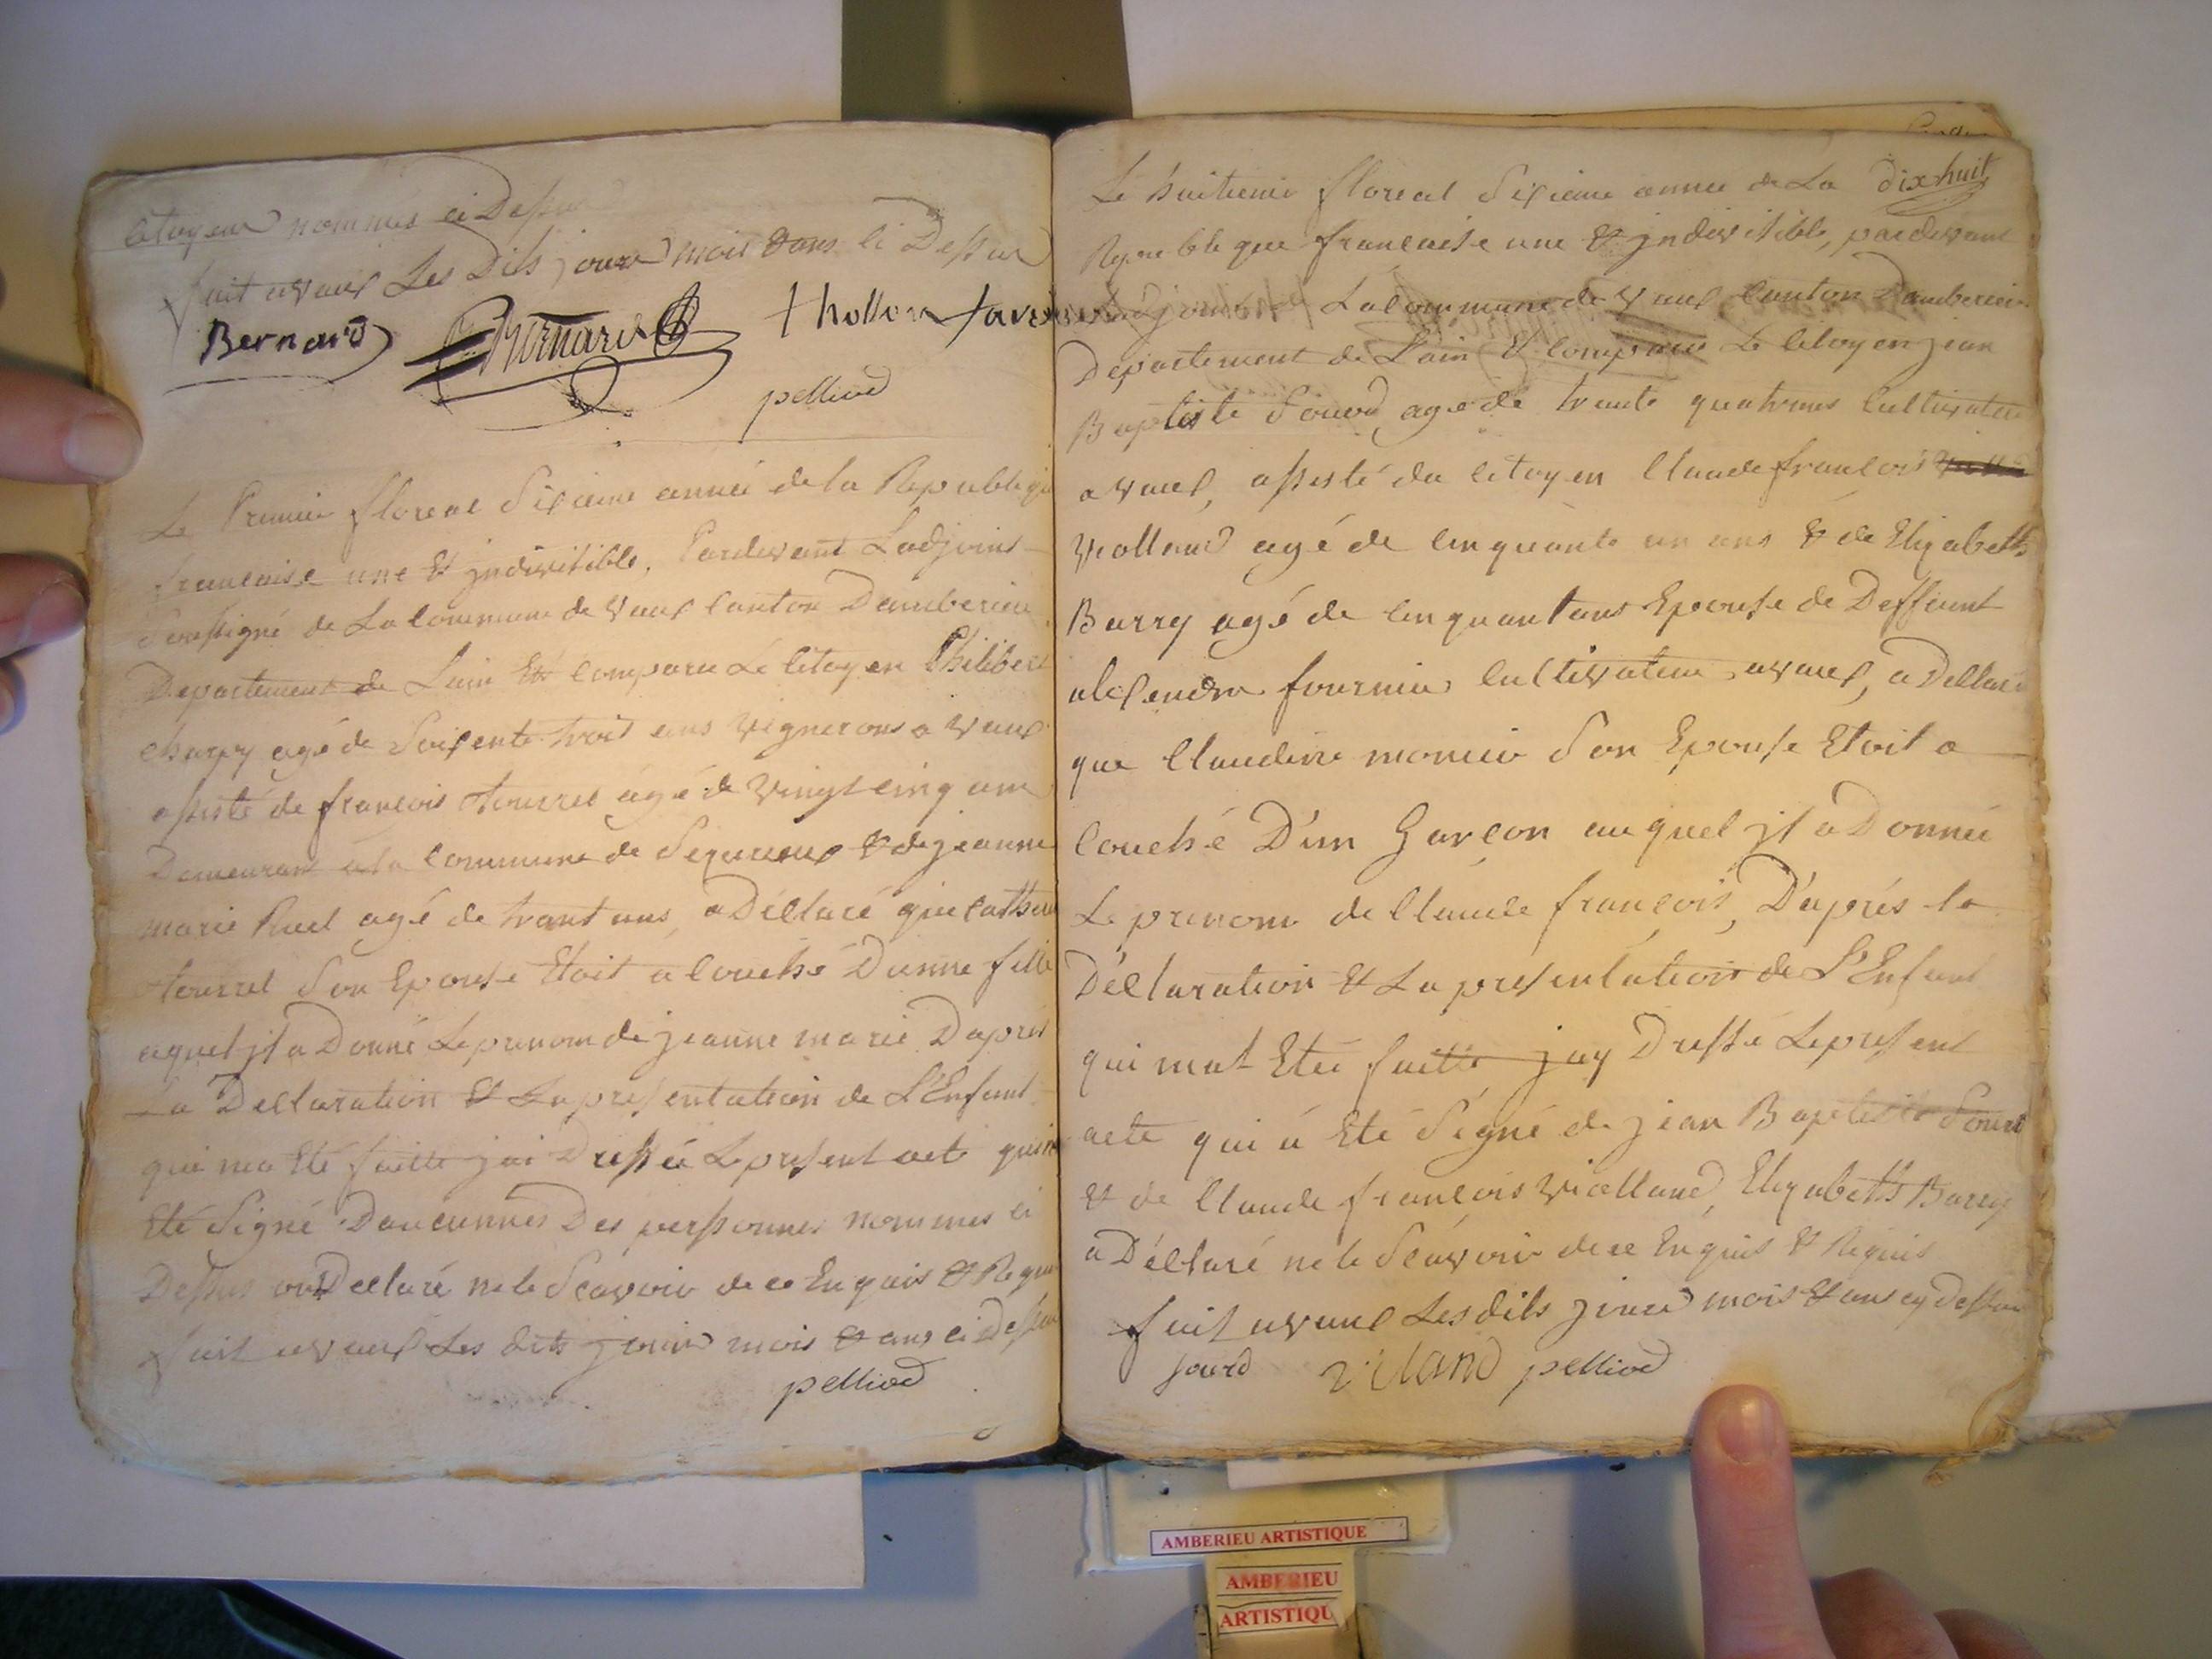 Citoyens nommés ci Dessus
fait a vaux Les Dits jours mois & ans ci Dessus
Bernard Bernard thollon
pelliod
Le Premier floreal Sixieme année de la Republique
francaise une & jndivisible, Pardevant Ladjoint
Soussigné de La Commune de vaux Canton Damberieu
Departement de Lain Est Comparu Le Citoyen Philibert
Charpy agé de Soixente trois ans vignerons a vaux
assisté de francois tourret agé de vingt cinq ans
Demeurant a la Commune de & de jeanne
marie Ruet agé de trant ans, a Déclaré que Catherine
tourret Son Epouse Etoit a Couché Dunne fille
aquel jl a Donné Le prenom de jeanne marie Dapres
La Declaration & La presentation de L'Enfant
qui ma Eté faitte jai Dressé Le present acte qui na
Eté Signé Daucunnes Des personnes nommes ci
Dessus ont Declaré ne le Scavoir de ce Enquis & Requis
fait a vaux Les dits jours mois & ans ci Dessus
pelliod
Le huitieme floreal Sixieme année de La dix huit
Republique francaise une & jndivisible, pardevant
Ladjoint La Commune de vaux Canton Damberieu
Departement de Lain Est Comparu Le Citoyen jean
Baptiste Sourd agé de trente quatre ans Cultivateur
a vaux, assisté du Citoyen Claude francois
violland agé de Cinquante un ans & de Elizabeth
Barry agé de Cinquant ans Epouse de Deffunt
alexendre fournier Cultivateur a vaux, a Declaré
que Claudine monier Son Epouse Etoit a
Couché D'un Garcon auquel jl a Donnée
Le prenom de Claude françois, D'aprés la
Déclaration & La presentation de L'Enfant
qui mat Eteé faitte jay Dressé Le present
acte qui á Eté Signé de jean Baptiste Sourd
& de Claude françois violland, Elizabeth Barry
a Déclaré ne le Scavoir de ce Enquis & Requis
fait a vaux Les dits jours mois & ans cy dessus
Sourd pelliod